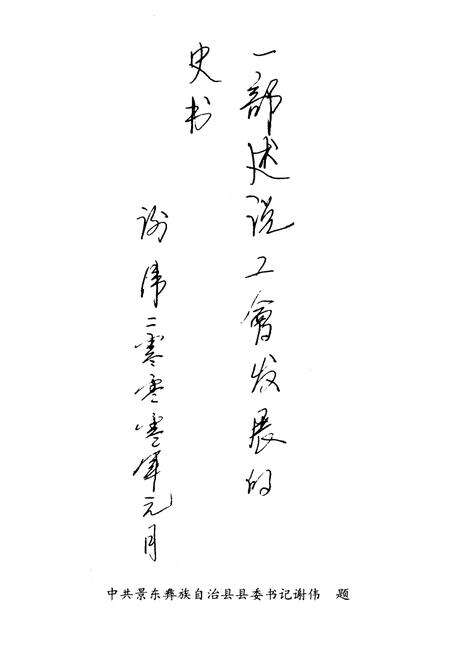 一部述说工會发展的
史书
谢伟二零零零年元月
中共景东彝族自治县县委书记谢伟 题